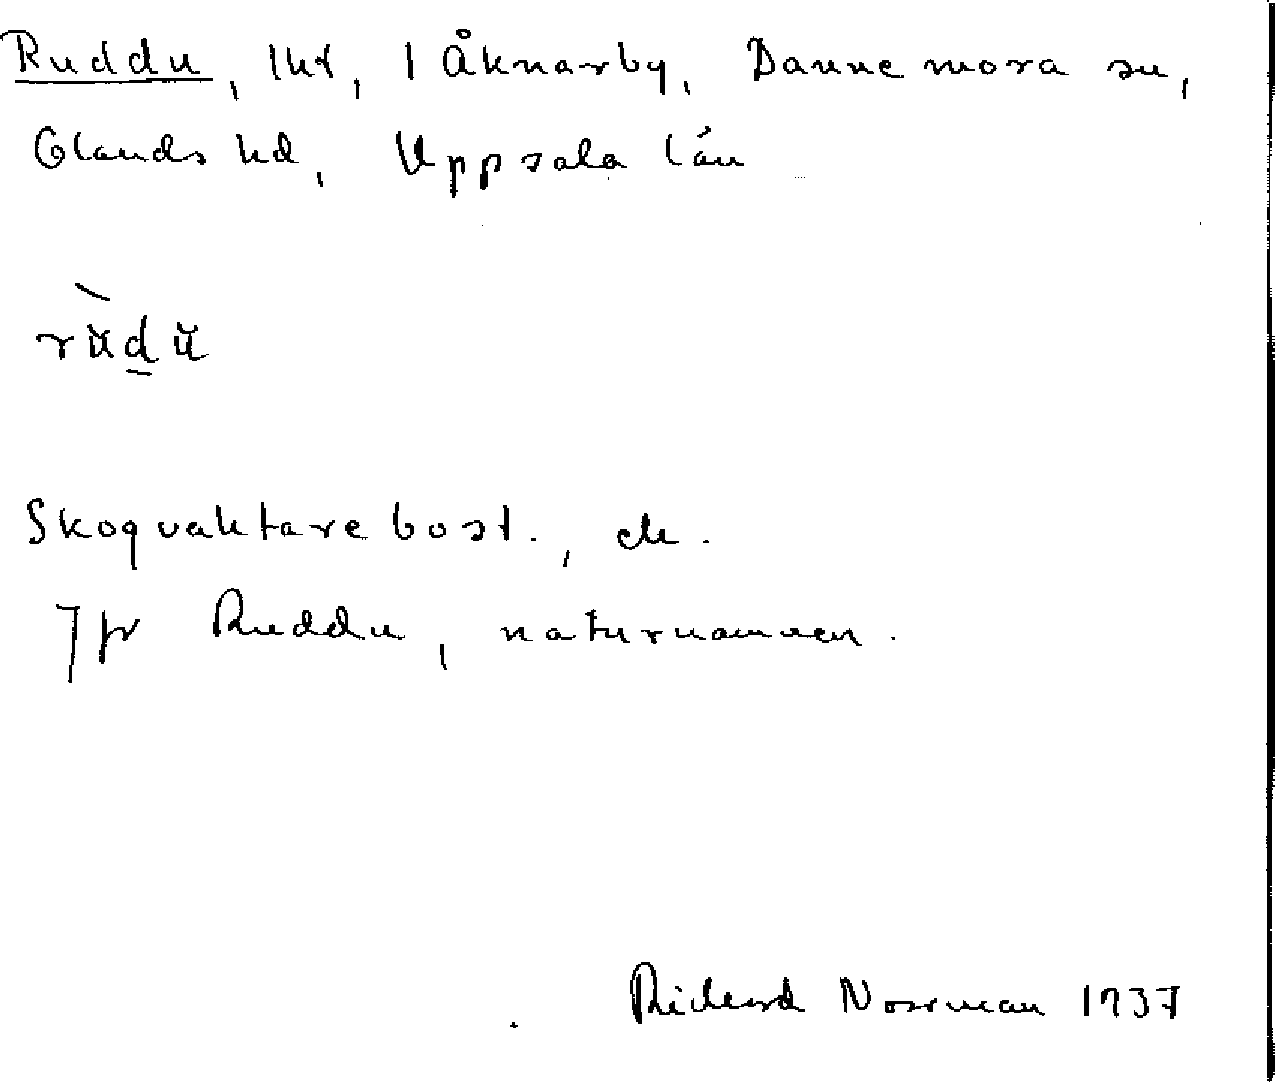 Ruddu, lht, i Åknarby, Dannemora sn,
Olands hd, Uppsala län
rŭdŭ
Skogvaktarebost.,
Jfr Ruddu, naturnamnen.
Richard Norrman 1937